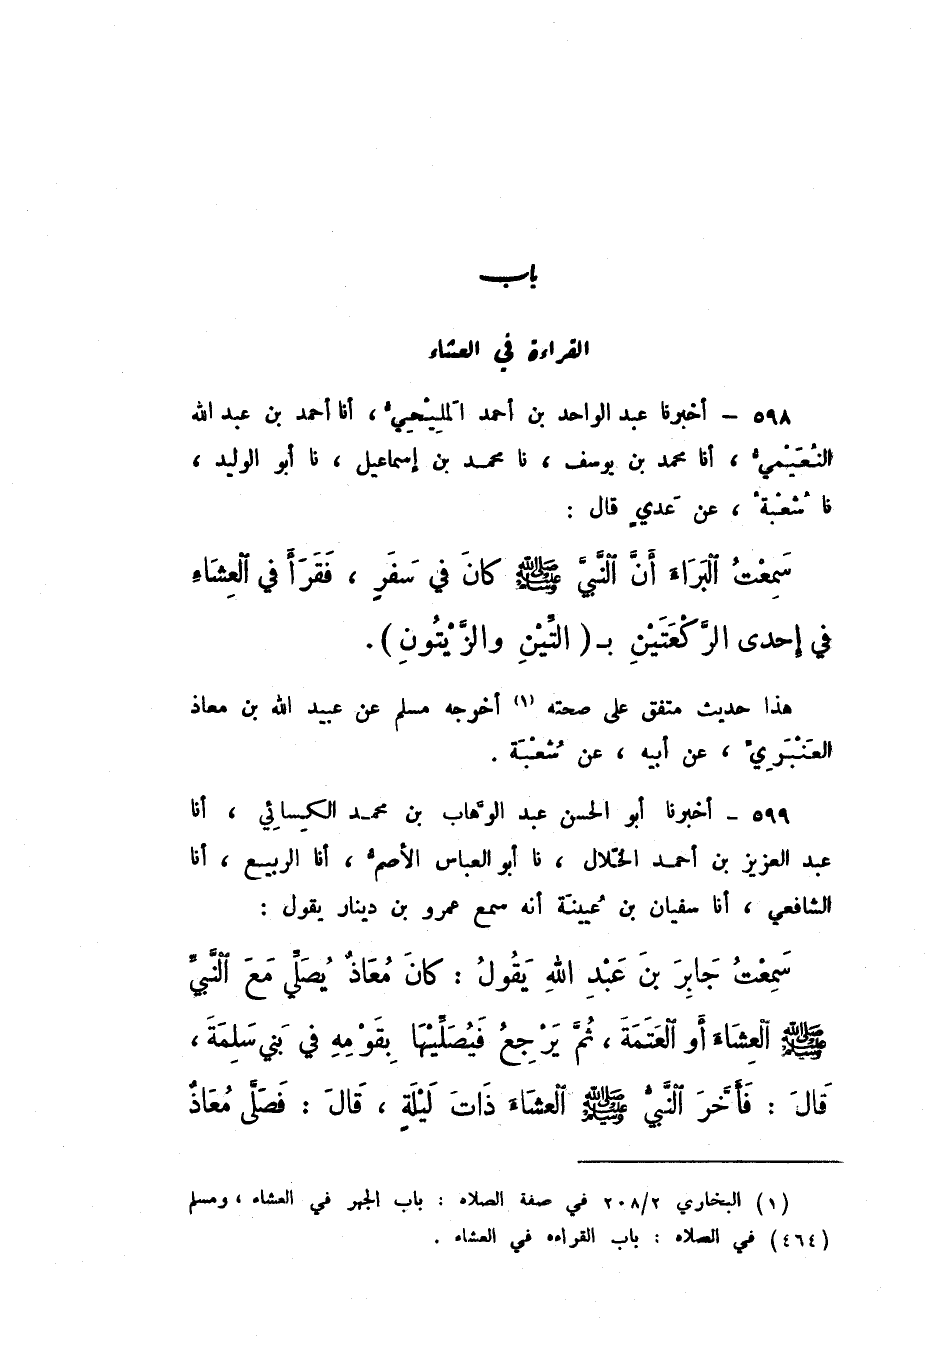 باب
القراءة في العشاء
٥٩٨ – أخبرنا عبد الواحد بن أحمد المَلِيْحِيُّ ، أنا أحمد بن عبد الله
النُّعَيْمِيُّ ، أنا محمد بن يوسف ، نا محمد بن إسماعيل ، نا أبو الوليد ،
نا شُعْبَةُ ، عن عَديٍ قال :
سَمِعْتُ ٱلْبَرَاءَ أَنَّ ٱلنَّبِيَّ ﷺ كانَ في سَفَرٍ ، فَقَرَأَ في ٱلْعِشَاءِ
في إحدى الرَّكْعَتَيْنِ بـ ( التِّيْنِ والزَّيْتُونِ ) .
هذا حديث متفق على صحته (١) أخرجه مسلم عن عبيد الله بن معاذ
العَنْبَرِيِّ ، عن أبيه ، عن شُعْبَةَ .
٥٩٩ – أخبرنا أبو الحسن عبد الوهَّاب بن محمد الكِسائِي ، أنا
عبد العزيز بن أحمد الخَلّال ، نا أبو العباس الأصمُّ ، أنا الربيع ، أنا
الشافعي ، أنا سفيان بن عُيينة أنه سمع عمرو بن دينار يقول :
سَمِعْتُ جَابِرَ بنَ عَبْدِ اللهِ يَقُولُ : كانَ مُعَاذٌ يُصَلِّي مَعَ ٱلنَّبِيِّ
ﷺ ٱلْعِشَاءَ أَو ٱلْعَتَمَةَ ، ثُمَّ يَرْجِعُ فَيُصَلِّيْهَا بِقَوْمِهِ في بَنِي سَلِمَةَ ،
قَالَ : فَأَخَّرَ ٱلنَّبيُّ ﷺ ٱلْعشَاءَ ذَاتَ لَيْلَةٍ ، قَالَ : فَصَلَّى مُعَاذٌ
(١) البخاري ٢٠٨/٢ في صفة الصلاه : باب الجهر في العشاء ، ومسلم
(٤٦٤) في الصلاه : باب القراءه في العشاء .